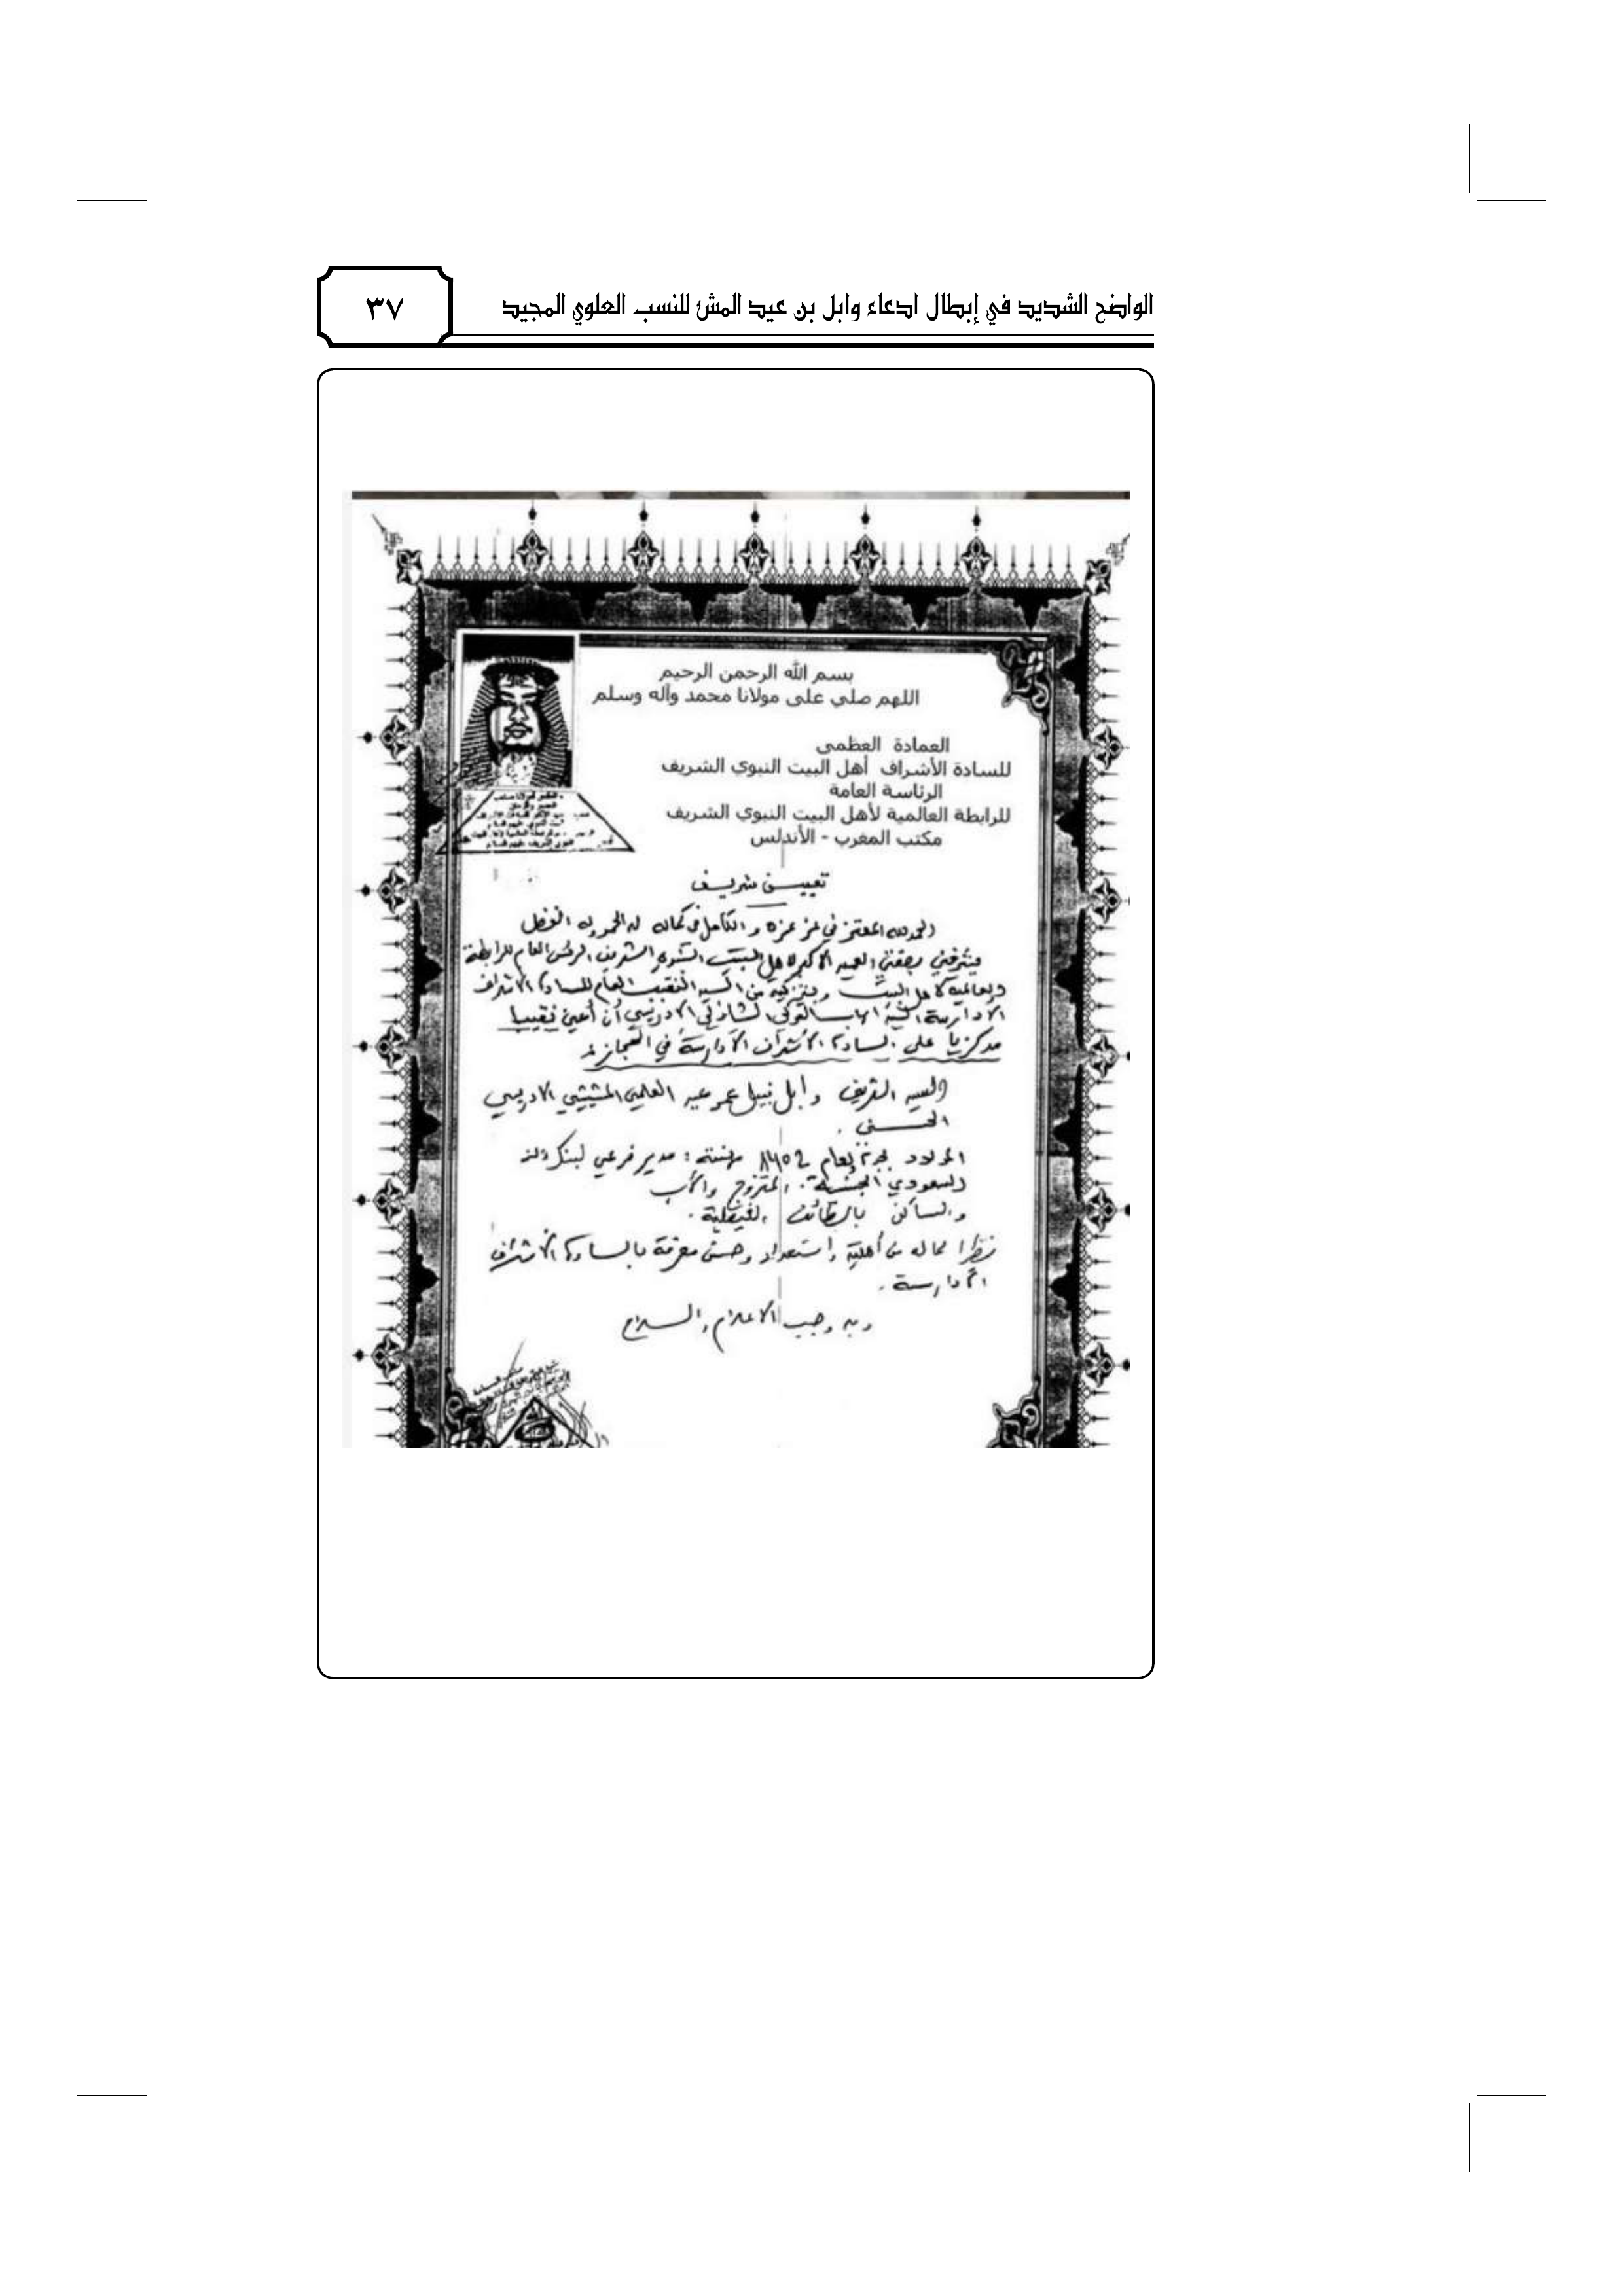 الواضح الشديد في إبطال ادعاء وابل بن عيد المش للنسب العلوي المجيد
٣٧
بسم الله الرحمن الرحيم
اللهم صلي على مولانا محمد وآله وسلم
العمادة العظمى
للسادة الأشراف أهل البيت النبوي الشريف
الرئاسة العامة
للرابطة العالمية لأهل البيت النبوي الشريف
مكتب المغرب - الأندلس
تعيين شريف
الحمد لله المعتز في عز عزه و الكامل في كماله له الحمد وله الفضل
يشرفني بصفتي العميد الأكبر لاهل البيت النبوي الشريف الرئيس العام للرابطة
العالمية لاهل البيت وبتزكية من السيد النقيب العام للسادة الاشراف
الأدارسة الشاذلي الادريسي أن أعين نقيبا
مركزيا على السادة الأشراف الأدارسة في الحجاز
السيد الشريف وابل نبيل عمر عيد العلمي المشيشي الادريسي
الحسني .
المولاد بجدة بعام مهنته : مدير فرعي لبنك
السعودي الجنسية . المتزوج والأب
والساكن بالطائف الفيصلية .
نظرا لما له من أهلية واستعداد وحسن معرفة بالسادة الأشراف
الأدارسة .
وبه وجب الاعلام والسلام